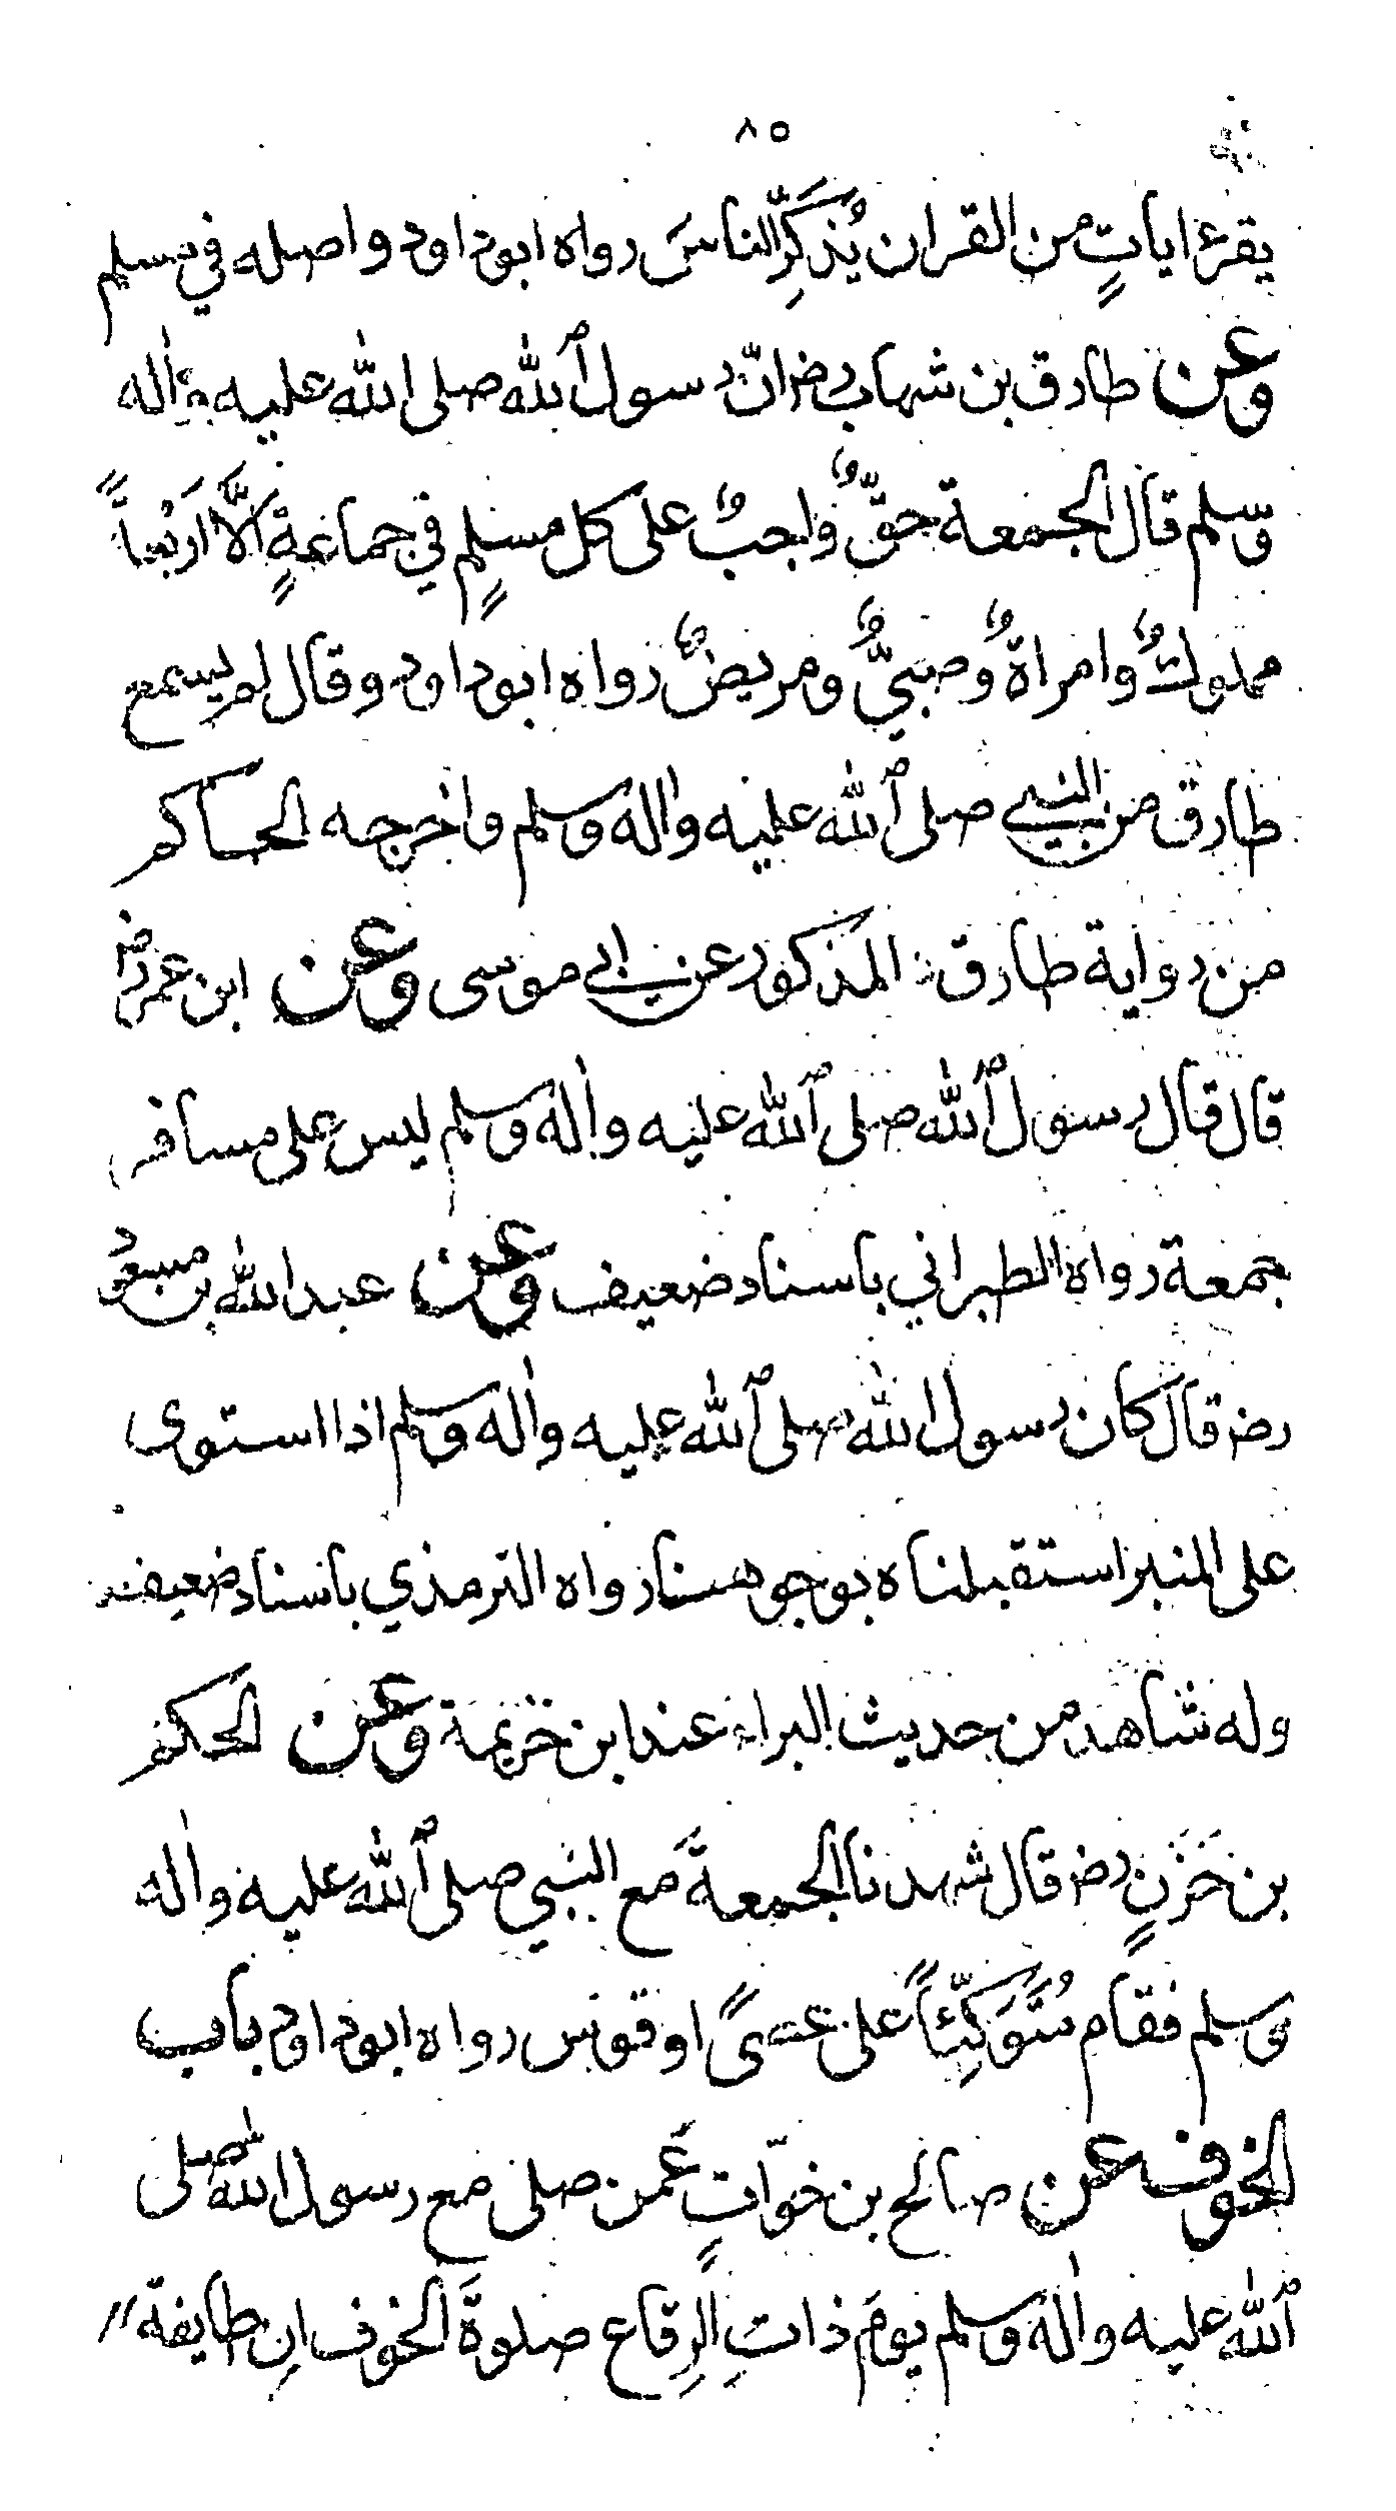 ٨٥
يقرء اياتٍ من القران يُذكِّرُ الناسَ رواه ابوداود واصله في مسلم
وعن طارق بن شهاب رض انّ رسول الله صلى الله عليه واٰله
وسلم قال الجمعة حقٌّ واجبٌ على كل مسلمٍ في جماعةٍ الّا اَرَبْعاً
مملوكٌ وامراةٌ وصبيٌّ ومريضٌ رواه ابوداود وقال لم يسمع
طارق من النبي صلى الله عليه واٰله وسلم واخرجه الحاكم
من رواية طارق المذكور عن ابي موسى وعن ابن عمر رض
قال قال رسول الله صلى الله عليه واٰله وسلم ليس على مسافر
جمعة رواه الطبراني باسناد ضعيف وعن عبدالله بن مسعود
رض قال كان رسول الله صلى الله عليه واٰله وسلم اذا استوى
على المنبر استقبلناه بوجوهنا رواه الترمذي باسناد ضعيف
وله شاهد من حديث البراء عند ابن خزيمة وعن الحكم
بن حَزَنٍ رض قال شهدنا الجمعةَ مع النبي صلى الله عليه واٰله
وسلم فقام مُتَوَكِّئاً على عصىً او قوس رواه ابوداود باب
الخوف عن صالح بن خوّاتٍ عَمن صلى مع رسول الله صلى
الله عليه واٰله وسلم يومَ ذاتِ الرِقاع صلوةَ الخوف ان طايفة